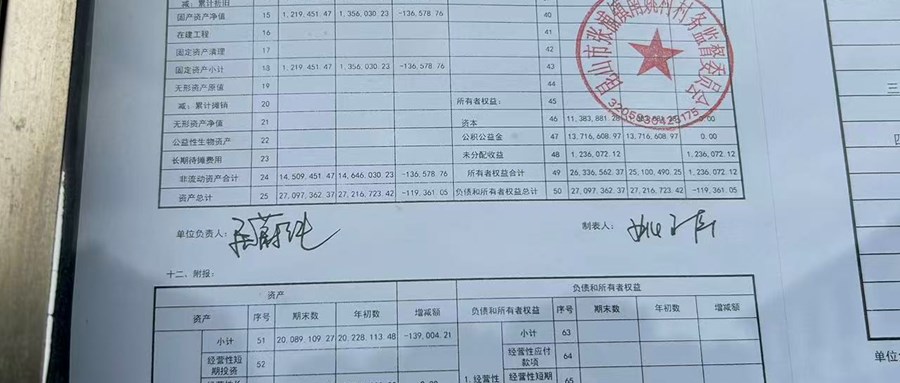 减：累计折旧 40
固产资产净值 15 1,219,451.47 1,356,030.23 -136,578.76
在建工程 16 41
固定资产清理 17 42
固定资产小计 18 1,219,451.47 1,356,030.23 -136,578.76 43
无形资产原值 19 44
减：累计摊销 20 所有者权益： 45
无形资产净值 21 资本 46 11,383,881.28 0.00
公益性生物资产 22 公积公益金 47 13,716,608.97 13,716,608.97 0.00
长期待摊费用 23 未分配收益 48 1,236,072.12 1,236,072.12
非流动资产合计 24 14,509,451.47 14,646,030.23 -136,578.76 所有者权益合计 49 26,336,562.37 25,100,490.25 1,236,072.12
资产总计 25 27,097,362.37 27,216,723.42 -119,361.05 负债和所有者权益总计 50 27,097,362.37 27,216,723.42 -119,361.05
昆山市张浦镇南姚村村务监督委员会
3205830429175
单位负责人：
制表人：
十二、附报：
资产 负债和所有者权益
资产 序号 期末数 年初数 增减额 负债和所有者权益 序号 期末数 年初数 增减额
小计 51 20,089,109.27 20,228,113.48 -139,004.21 小计 63
经营性短期投资 52 经营性应付款项 64
1.经营性 经营性短期 65
三
四
单位